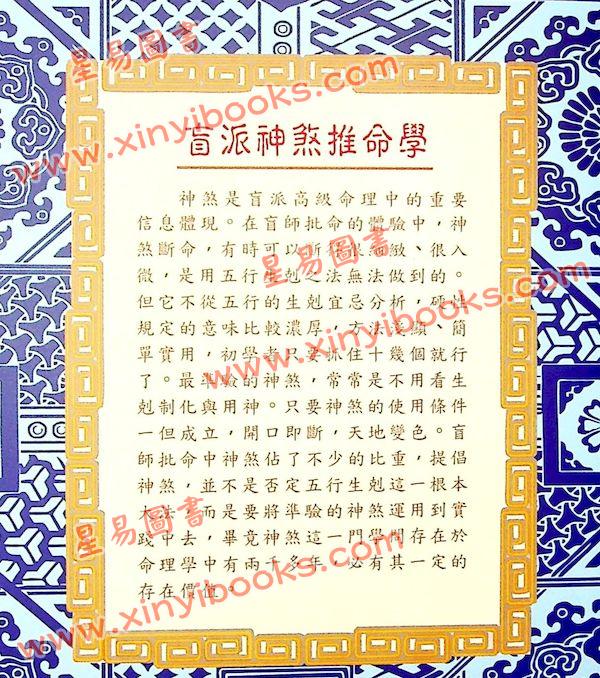 盲派神煞推命學
神煞是盲派高級命理中的重要
信息體現。在盲師批命的體驗中,神
煞斷命,有時可以斷得很細緻、很入
微,是用五行生剋之法無法做到的。
但它不從五行的生剋宜忌分析,硬性
規定的意味比較濃厚,方法淺顯、簡
單實用,初學者只要抓住十幾個就行
了。最準驗的神煞,常常是不用看生
剋制化與用神。只要神煞的使用條件
一但成立,開口即斷,天地變色。盲
師批命中神煞佔了不少的比重,提倡
神煞,並不是否定五行生剋這一根本
大法,而是要將準驗的神煞運用到實
踐中去,畢竟神煞這一門學問存在於
命理學中有兩千多年,必有其一定的
存在價值。
星易圖書
www.xinyibooks.com
星易圖書
www.xinyibooks.com
星易圖書
www.xinyibooks.com